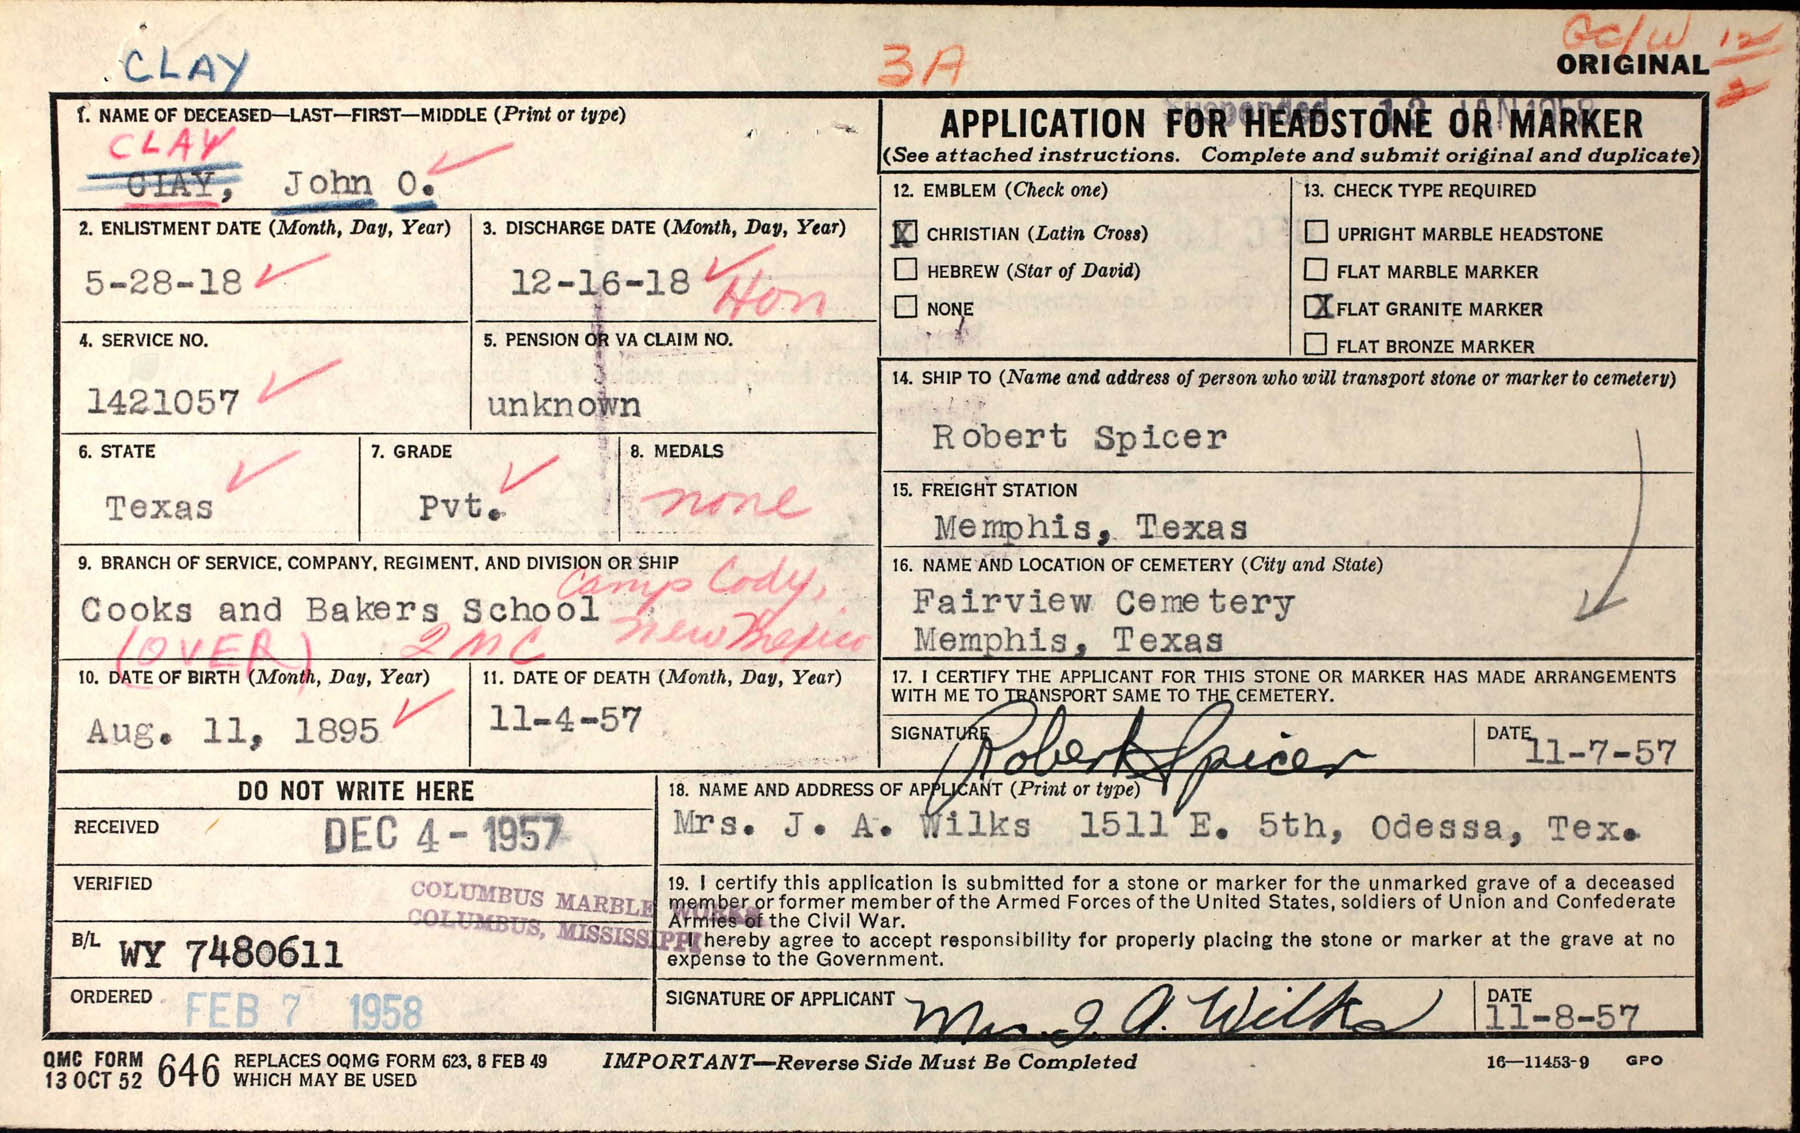 CLAY
3A
ORIGINAL
12
1. NAME OF DECEASED—LAST—FIRST—MIDDLE (Print or type)
CLAY
CIAY, John O.
2. ENLISTMENT DATE (Month, Day, Year)
5-28-18
3. DISCHARGE DATE (Month, Day, Year)
12-16-18 Hon
4. SERVICE NO.
1421057
5. PENSION OR VA CLAIM NO.
unknown
6. STATE
Texas
7. GRADE
Pvt.
8. MEDALS
none
9. BRANCH OF SERVICE, COMPANY, REGIMENT, AND DIVISION OR SHIP
Cooks and Bakers School
Camp Cody,
New Mexico
(OVER) QMC
10. DATE OF BIRTH (Month, Day, Year)
Aug. 11, 1895
11. DATE OF DEATH (Month, Day, Year)
11-4-57
Suspended 13 JAN 1958
APPLICATION FOR HEADSTONE OR MARKER
(See attached instructions. Complete and submit original and duplicate)
12. EMBLEM (Check one)
X CHRISTIAN (Latin Cross)
HEBREW (Star of David)
NONE
13. CHECK TYPE REQUIRED
UPRIGHT MARBLE HEADSTONE
FLAT MARBLE MARKER
X FLAT GRANITE MARKER
FLAT BRONZE MARKER
14. SHIP TO (Name and address of person who will transport stone or marker to cemetery)
Robert Spicer
15. FREIGHT STATION
Memphis, Texas
16. NAME AND LOCATION OF CEMETERY (City and State)
Fairview Cemetery
Memphis, Texas
17. I CERTIFY THE APPLICANT FOR THIS STONE OR MARKER HAS MADE ARRANGEMENTS
WITH ME TO TRANSPORT SAME TO THE CEMETERY.
SIGNATURE Robert Spicer
DATE 11-7-57
DO NOT WRITE HERE
RECEIVED DEC 4 - 1957
VERIFIED
COLUMBUS MARBLE WORKS
COLUMBUS, MISSISSIPPI
B/L WY 7480611
ORDERED FEB 7 1958
18. NAME AND ADDRESS OF APPLICANT (Print or type)
Mrs. J. A. Wilks 1511 E. 5th, Odessa, Tex.
19. I certify this application is submitted for a stone or marker for the unmarked grave of a deceased
member or former member of the Armed Forces of the United States, soldiers of Union and Confederate
Armies of the Civil War.
I hereby agree to accept responsibility for properly placing the stone or marker at the grave at no
expense to the Government.
SIGNATURE OF APPLICANT Mrs. J. A. Wilks
DATE 11-8-57
QMC FORM
13 OCT 52 646
REPLACES OQMG FORM 623, 8 FEB 49
WHICH MAY BE USED
IMPORTANT—Reverse Side Must Be Completed
16—11453-9 GPO